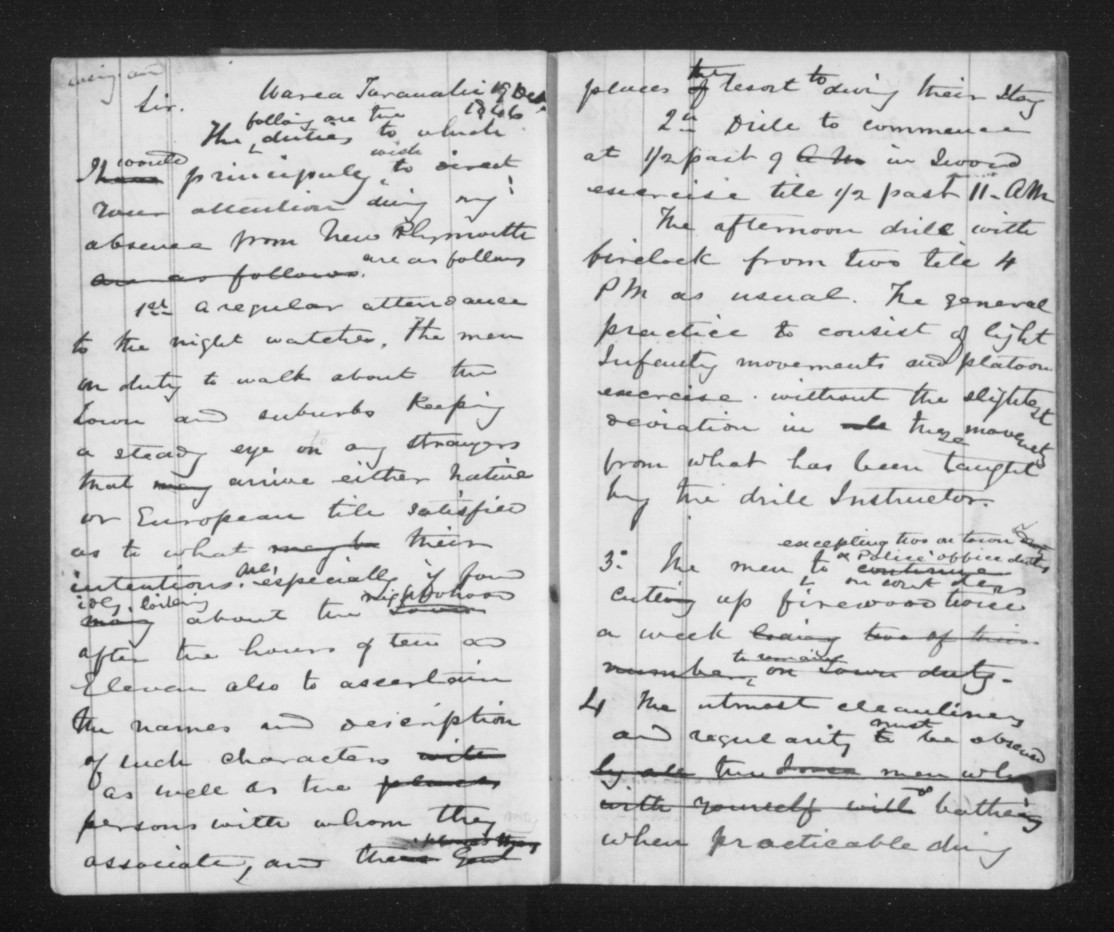 Warea Taranaki 19 Dec
Sir. 1846
following are the
The duties to which
I have would principally wish to direct
your attention during my
absence from New Plymouth
are as follows. are as follows
1st a regular attendance
to the night watches. The men
on duty to walk about the
Town and suburbs keeping
a steady eye on any strangers
that may arrive either Native
or European till satisfied
as to what may be their
intentions. especially if found
about the Town neighbourhood
after the hours of ten and
Eleven also to ascertain
the names and description
of such characters with
as well as the places
persons with whom they
associate, and
places the of resort to during their stay
2d Drill to commence
at 1/2 past 9 A M in Sword
exercise till 1/2 past 11 - AM
The afternoon drill with
firelock from two till 4
PM as usual. The general
practice to consist of light
Infantry movements and platoon
exercise. without the slightest
deviation in these movements
from what has been taught
by the drill Instructor.
excepting two on town duty
& Police office duty
3. The men to continue
on court days
cutting up firewood twice
a week leaving two of this
to remain
number, on Town duty.
4 The utmost cleanliness
must
and regularity to be observed
by all the men who
with yourself will bathing
when practicable during